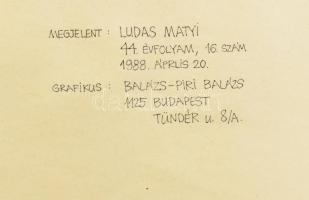 MEGJELENT : LUDAS MATYI
44. ÉVFOLYAM, 16. SZÁM
1988. ÁPRILIS 20.
GRAFIKUS : BALÁZS-PIRI BALÁZS
1125 BUDAPEST
TÜNDÉR u. 8/A.